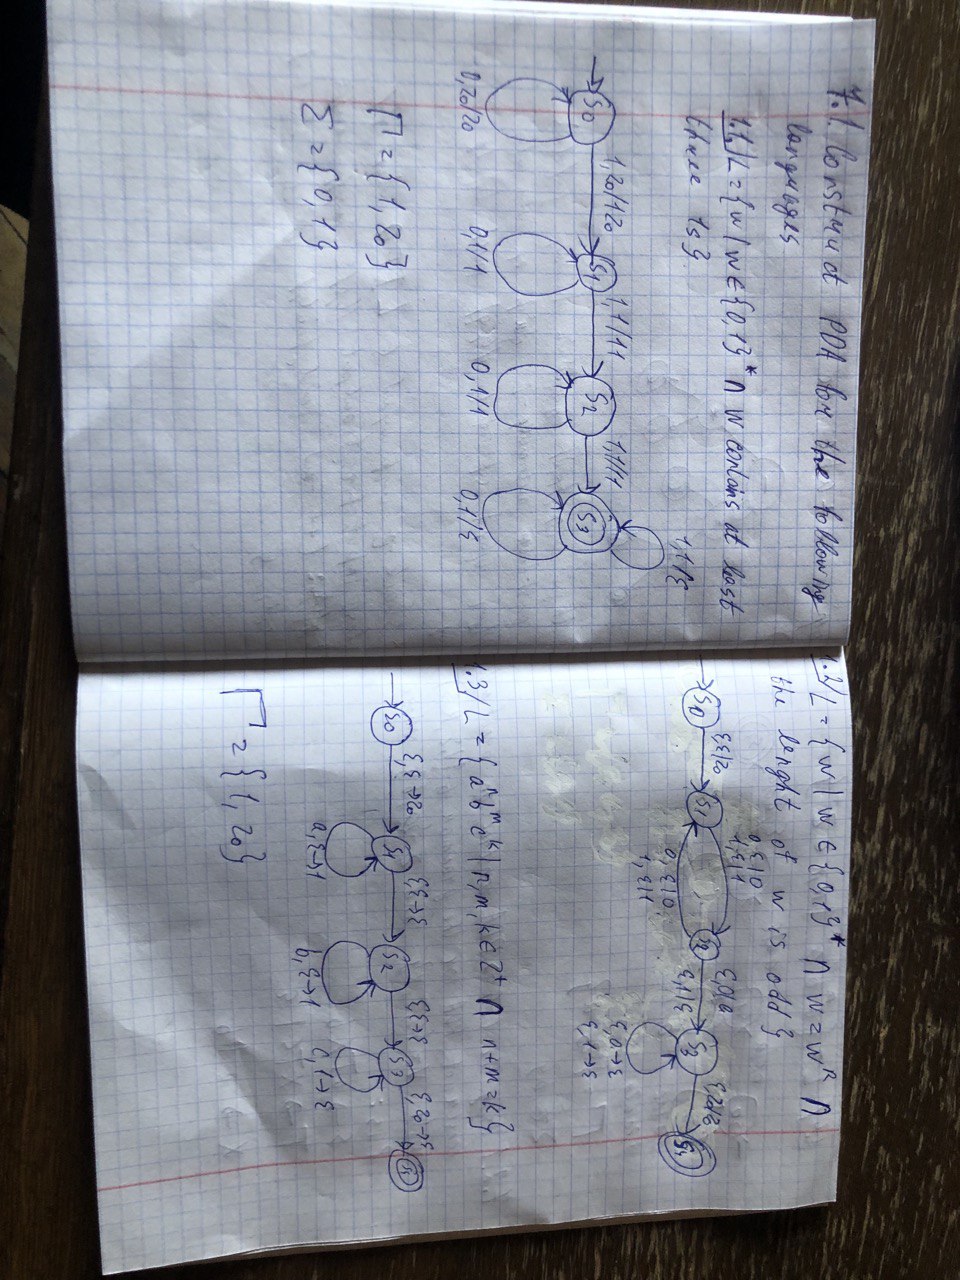 7.1. Construct PDA for the following
languages
1.1./ L = {w | w ∈ {0,1}* ∩ w contains at least
three 1s}
1,1/ε
1,z₀/1z₀
1,1/11
1,1/11
S₀
S₁
S₂
S₃
0,z₀/z₀
0,1/1
0,1/1
0,1/ε
Γ = {1, z₀}
Σ = {0,1}
1.2/ L = {w | w ∈ {0,1}* ∩ w = wᴿ ∩
the lenght of w is odd}
0,ε/0
1,ε/1
ε,ε/z₀
ε,z₀/z₀
S₀
S₁
S₂
S₃
S₄
ε,1/ε
0,ε/0
1,ε/1
ε,0→ε
ε,1→ε
1.3/ L = {aⁿbᵐcᵏ | n,m,k ∈ Z⁺ ∩ n+m=k}
ε,ε→z₀
ε,ε→ε
ε,ε→ε
ε,z₀→ε
S₀
S₁
S₂
S₃
a,ε→1
b,ε→1
c,1→ε
Γ = {1, z₀}